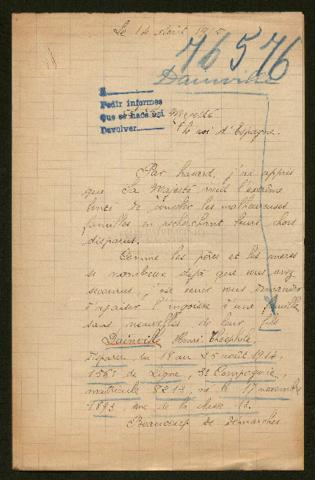 Le 14 Août 1915
76576
Dainville
S
Pedir informes
Que se hace así
Devolver
Majesté
le roi d'Espagne.
Par hasard, j'ai appris
que Sa Majesté avait l'extrême
bonté de consoler les malheureuses
familles en recherchant leurs chers
disparus.
Comme les pères et les mères
si nombreux déjà que vous avez
secourus, je viens vous demander
d'apaiser l'angoisse d'une famille
sans nouvelles de leur fils
Dainville Henri Théophile,
disparu du 18 au 25 août 1914,
156e de Ligne, 3e Compagnie,
matricule 8212, né le 17 novembre
1893, rue de la
Beaucoup de démarches